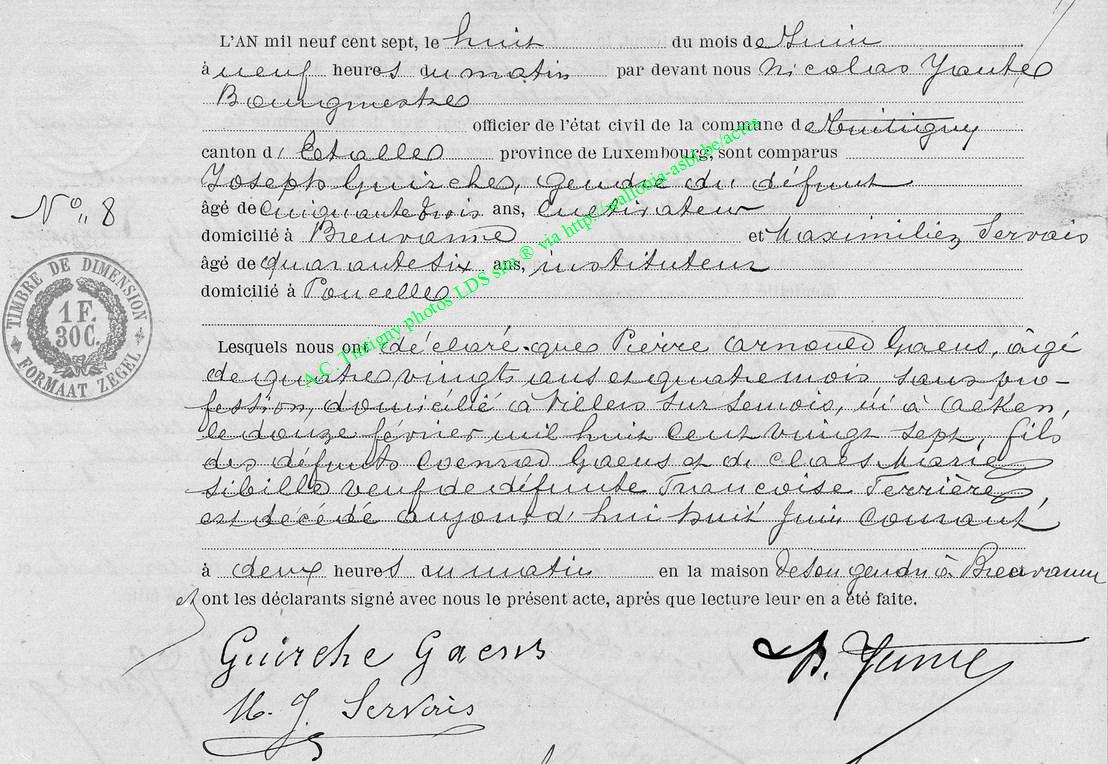 L'AN mil neuf cent sept, le huit du mois de Juin
à neuf heures du matin par devant nous Nicolas
Bourgmestre
officier de l'état civil de la commune de
canton d' Etalle province de Luxembourg, sont comparus
Joseph Guirche, gendre du défunt
N° 8
âgé de cinquante trois ans, cultivateur
domicilié à Breuvanne et Maximilien Servais
âgé de quarante six ans, instituteur
domicilié à Poncelle
TIMBRE DE DIMENSION
1 F.
30 C.
FORMAAT ZEGEL
Lesquels nous ont déclaré que Pierre Arnould Gaens, âgé
de quatre vingts ans et quatre mois sans pro-
fession, domicilié à Villers sur Semois, né à
le douze février mil huit cent vingt sept, fils
des défunts Coenrad Gaens et de Claes Marie
Sibille veuf de défunte Françoise Terrière,
est décédé aujourd'hui huit Juin courant
à deux heures du matin en la maison de son gendre à Breuvanne
et ont les déclarants signé avec nous le présent acte, après que lecture leur en a été faite.
Guirche Gaens
M. J. Servais
A.C. Tintigny photos LDS sm® via http://wallonia-asbl.be/actes